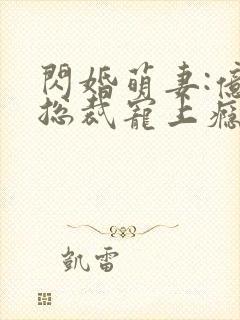 閃婚萌妻:億
總裁寵上癮
凱雷